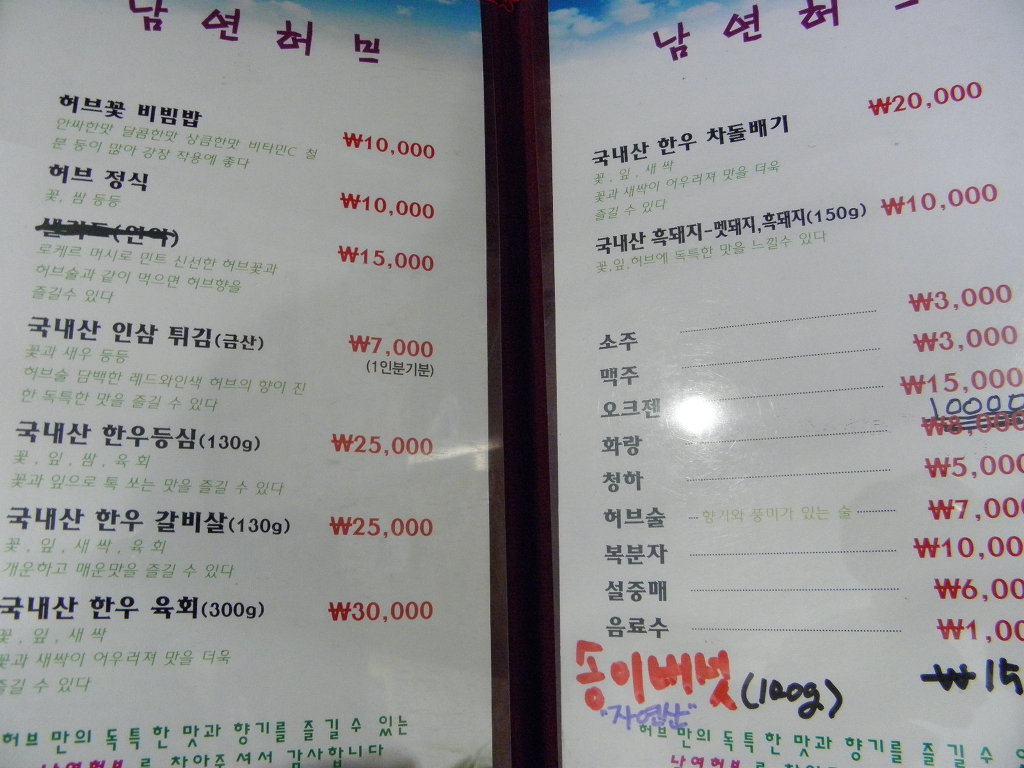 남 연 허 브
허브꽃 비빔밥 ₩10,000
안싸한맛 달콤한맛 상큼한맛 비타민C 철
분 등이 많아 강장 작용에 좋다
허브 정식 ₩10,000
꽃, 쌈 등등
(안악) ₩15,000
로케르 머시로 민트 신선한 허브꽃과
허브술과 같이 먹으면 허브향을
즐길수 있다
국내산 인삼 튀김(금산) ₩7,000
꽃과 새우 등등 (1인분기분)
허브술 담백한 레드와인색 허브의 향이 진
한 독특한 맛을 즐길 수 있다
국내산 한우등심(130g) ₩25,000
꽃 , 잎 , 쌈 , 육 회
꽃과 잎으로 톡 쏘는 맛을 즐길 수 있다
국내산 한우 갈비살(130g) ₩25,000
꽃 , 잎 , 새 싹 , 육 회
개운하고 매운맛을 즐길 수 있다
국내산 한우 육회(300g) ₩30,000
꽃 , 잎 , 새 싹
꽃과 새싹이 어우러져 맛을 더욱
즐길 수 있다
허브 만의 독특한 맛과 향기를 즐길수 있는
남연허브 로 찾아주셔서 감사합니다
남 연 허
국내산 한우 차돌배기 ₩20,000
꽃 , 잎 , 새 싹
꽃과 새싹이 어우러져 맛을 더욱
즐길 수 있다
국내산 흑돼지-멧돼지,흑돼지(150g) ₩10,000
꽃,잎,허브에 독특한 맛을 느낄수 있다
소주 ₩3,000
맥주 ₩3,000
오크젠 ₩15,000
10000
화랑 ₩8,000
청하 ₩5,000
허브술 향기와 풍미가 있는 술 ₩7,00
복분자 ₩10,00
설중매 ₩6,00
음료수 ₩1,00
송이버섯(100g) ₩15
"자연산"
허브 만의 독특한 맛과 향기를 즐길수 있
남연허브 로